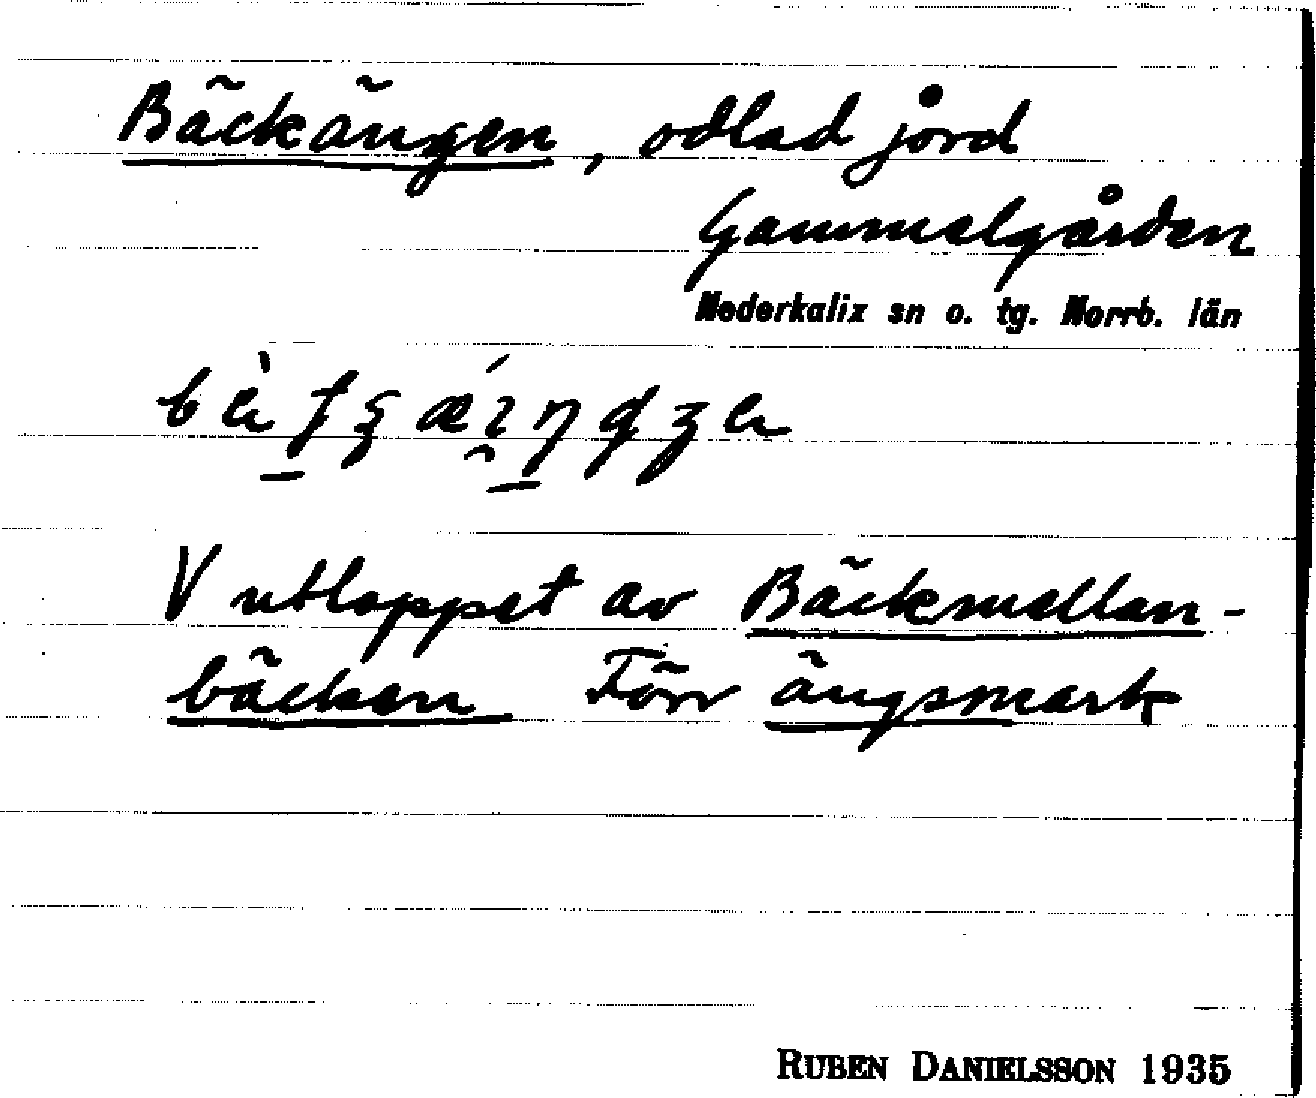 Bäckängen, odlad jord
Gammelgården
Nederkalix sn o. tg. Norrb. län
V utloppet av Bäckmellan-
bäcken Förr ängsmark
RUBEN DANIELSSON 1935